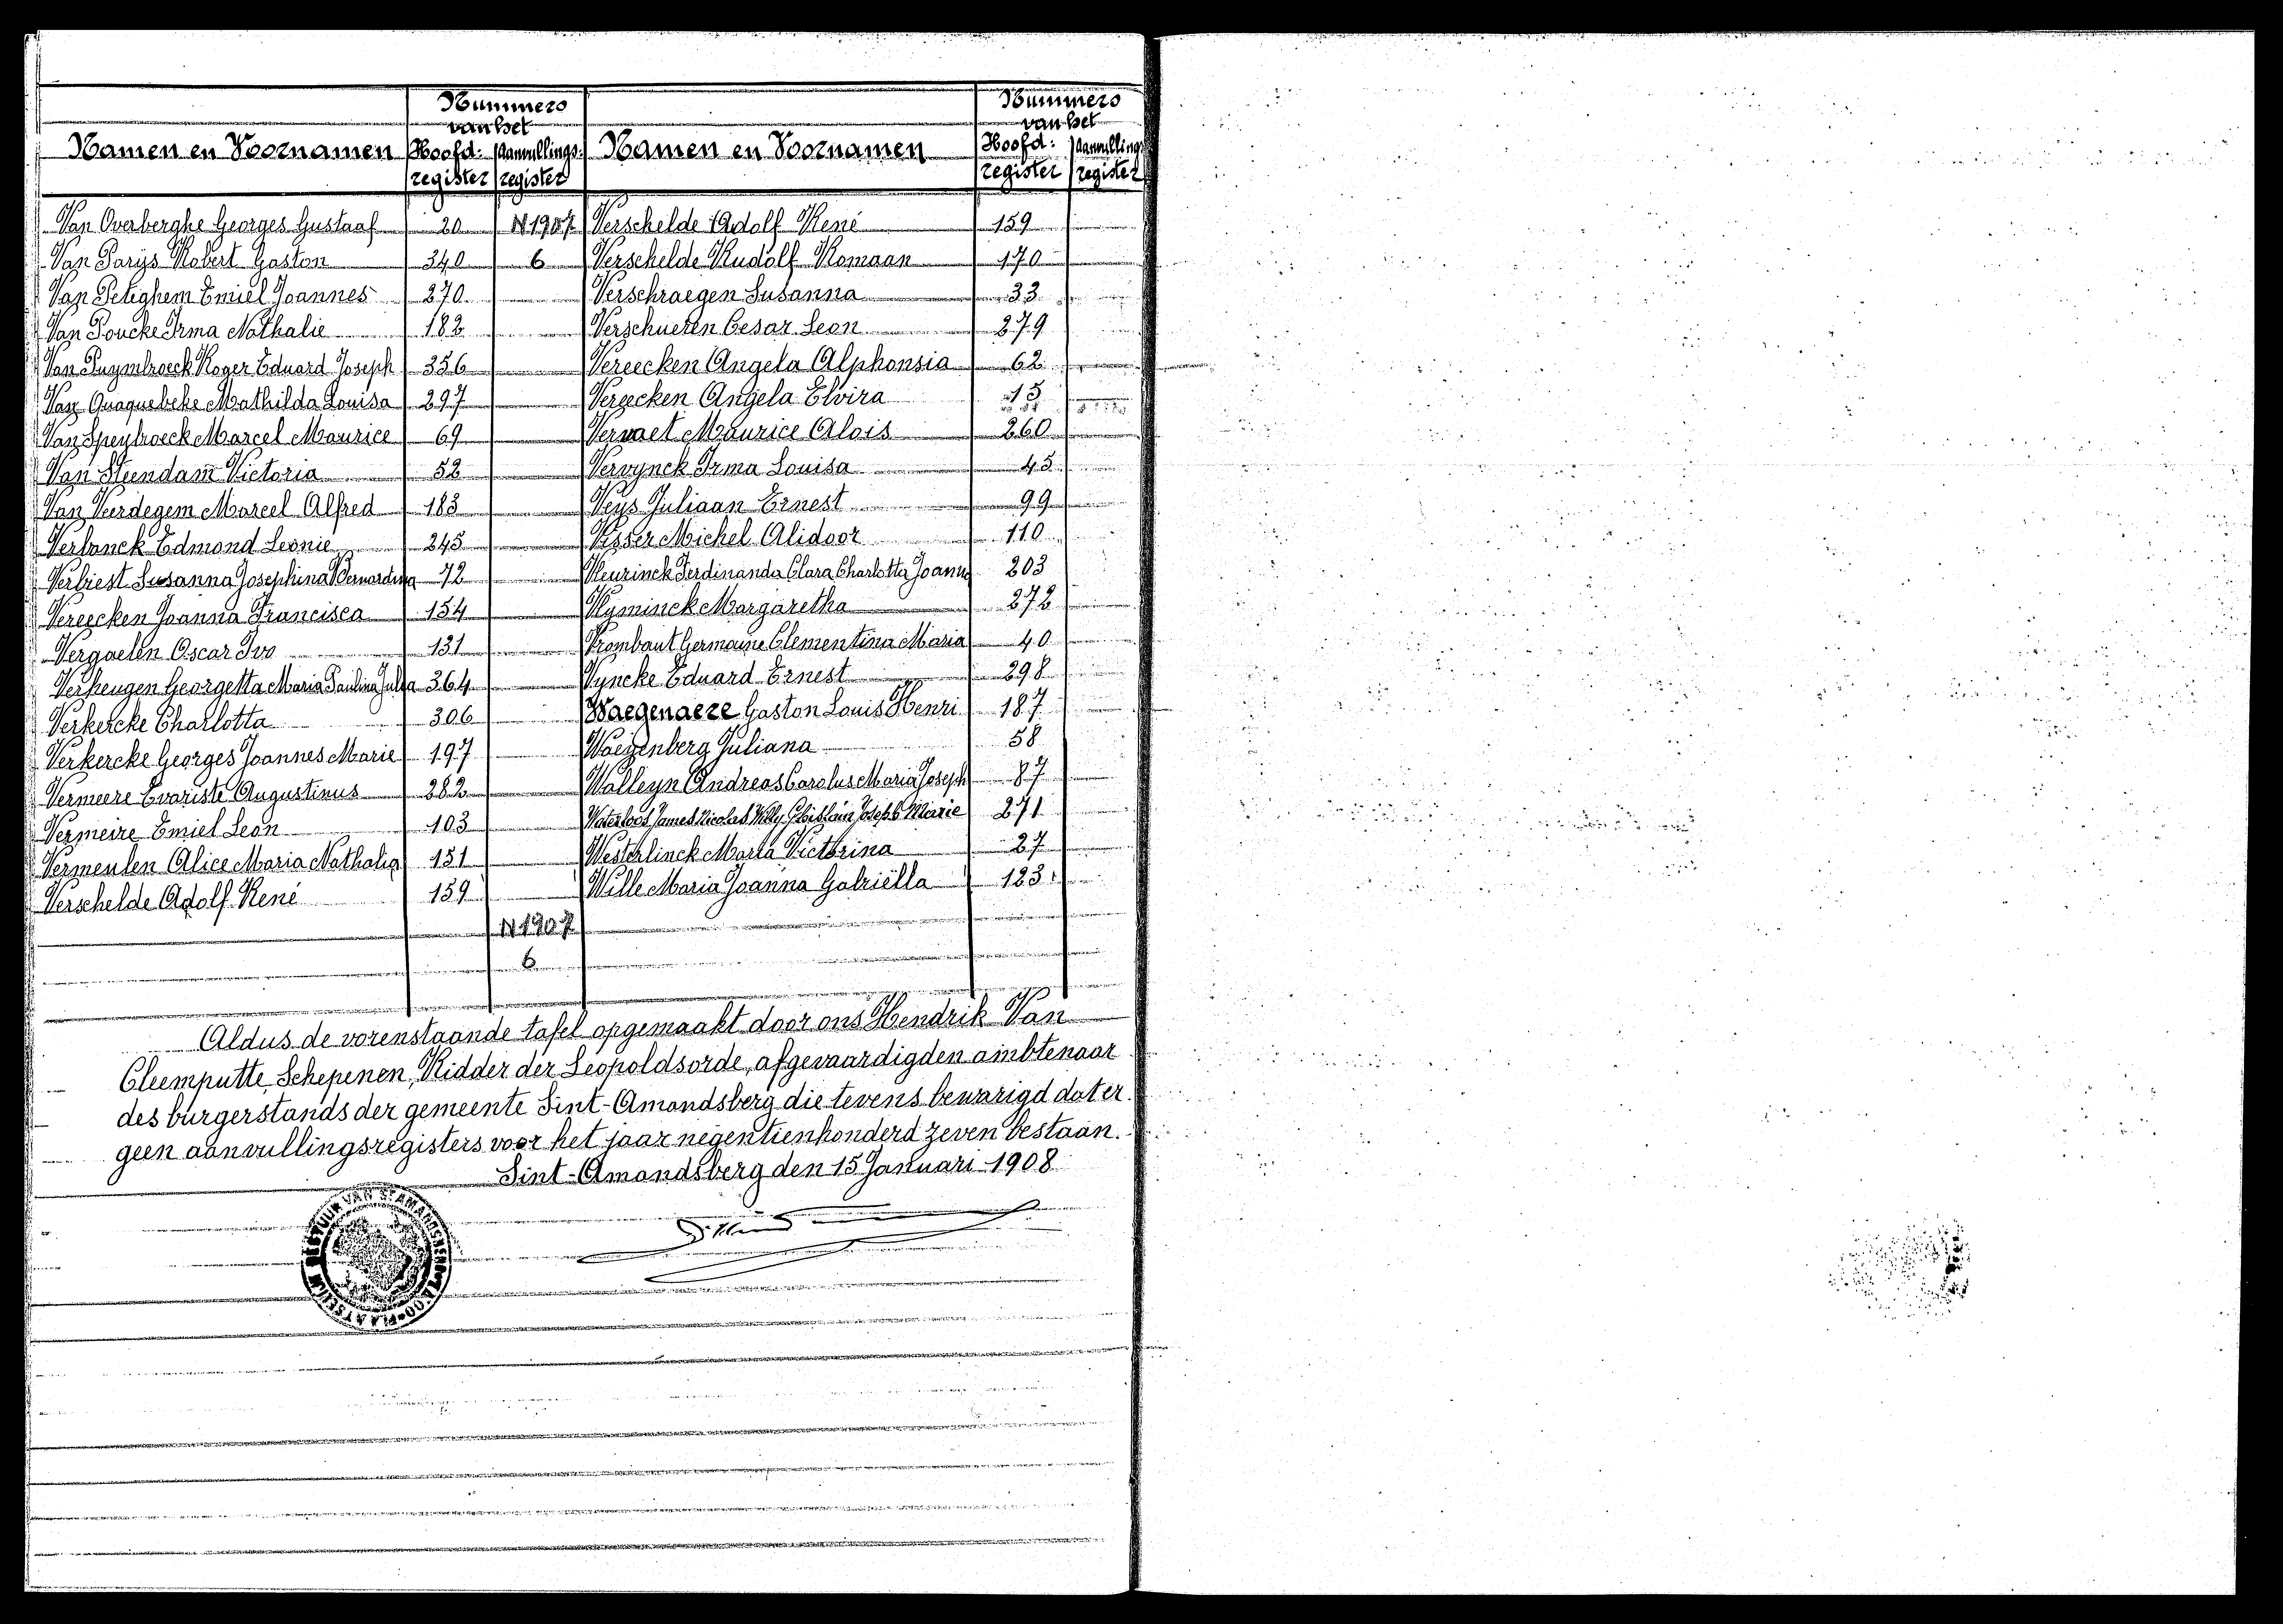 Nummers
van het
Namen en Voornamen Hoofd: register Aanvullings- register
Van Overberghe Georges Gustaaf 20 N 1907
Van Parijs Robert Gaston 340 6
Van Peteghem Emiel Joannes 270
Van Poucke Irma Nathalie 182
Van Puymbroeck Roger Eduard Joseph 356
Van Quaquebeke Mathilda Louisa 297
Van Speybroeck Marcel Maurice 69
Van Steendam Victoria 52
Van Veerdegem Marcel Alfred 183
Verbanck Edmond Leonie 245
Verbiest Susanna Josephina Bernardina 72
Vereecken Joanna Francisca 154
Vergaelen Oscar Ivo 131
Verheugen Georgetta Maria Paulina Julia 364
Verkercke Charlotta 306
Verkercke Georges Joannes Marie 197
Vermeere Evariste Augustinus 282
Vermeire Emiel Leon 103
Vermeulen Alice Maria Nathalia 151
Verschelde Adolf René 159
N 1907
6
Nummers
van het
Namen en Voornamen Hoofd: register Aanvullings register
Verschelde Adolf René 159
Verschelde Rudolf Romaan 170
Verschraegen Susanna 33
Verschueren Cesar Leon 279
Vereecken Angela Alphonsia 62
Vereecken Angela Elvira 15
Vervaet Maurice Alois 260
Vervynck Irma Louisa 45
Veys Juliaan Ernest 99
Visser Michel Alidoor 110
Vleurinck Ferdinanda Clara Charlotta Joanna 203
Vlyminck Margaretha 272
Vrombaut Germaine Clementina Maria 40
Vyncke Eduard Ernest 298
Waegenaere Gaston Louis Henri 187
Waeyenberg Juliana 58
Walleyn Andreas Carolus Maria Joseph 87
Waterloos James Nicolas Willy Ghislain Joseph Marie 271
Westerlinck Maria Victorina 27
Wille Maria Joanna Gabriëlla 123
Aldus de vorenstaande tafel opgemaakt door ons Hendrik Van
Cleemputte, Schepenen, Ridder der Leopoldsorde, afgevaardigden ambtenaar
des burgerstands der gemeente Sint-Amandsberg die tevens bewarigd dat er
geen aanvullingsregisters voor het jaar negentienhonderd zeven bestaan.
Sint-Amandsberg den 15 Januari 1908